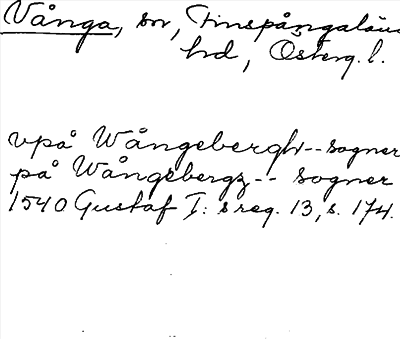 Vånga, sn, Finspångaläns
hrd, Österg. l.
vpå Wångebergh -- sogner
på Wångebergz -- sogner
1540 Gustaf I: s reg. 13, s. 174.